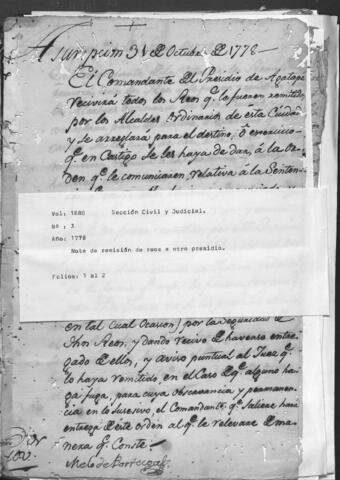 Asumpcion 31 de Octubre de 1778
El Comandante del Presidio de Agatape
recivira todos los Reos qe. le fueren remitidos
por los Alcaldes Ordinarios de ésta Ciudad
y se arreglará para el destino, ó exercicio
qe. en Castigo se les haya de dar, á la or
den qe. le comunicaren, relativa á la Senten
Vol: 1680 Sección Civil y Judicial.
Nº : 3
Año: 1778
Nota de remisión de reos a otro presidio.
Folios: 1 al 2
en tal cual Ocasion) por la Seguridad de
dhos Reos, y dando recivo de haverse entre
gado de ellos, y aviso puntual al Juez qe.
lo haya remitido, en el Caso de qe. alguno ha
ga fuga, para cuya observancia y permanen
cia en lo succesivo, el Comandante qe. Saliere hará
entrega de este orden al qe. le relevare de ma
nera qe. Conste.
Melo de Portugal